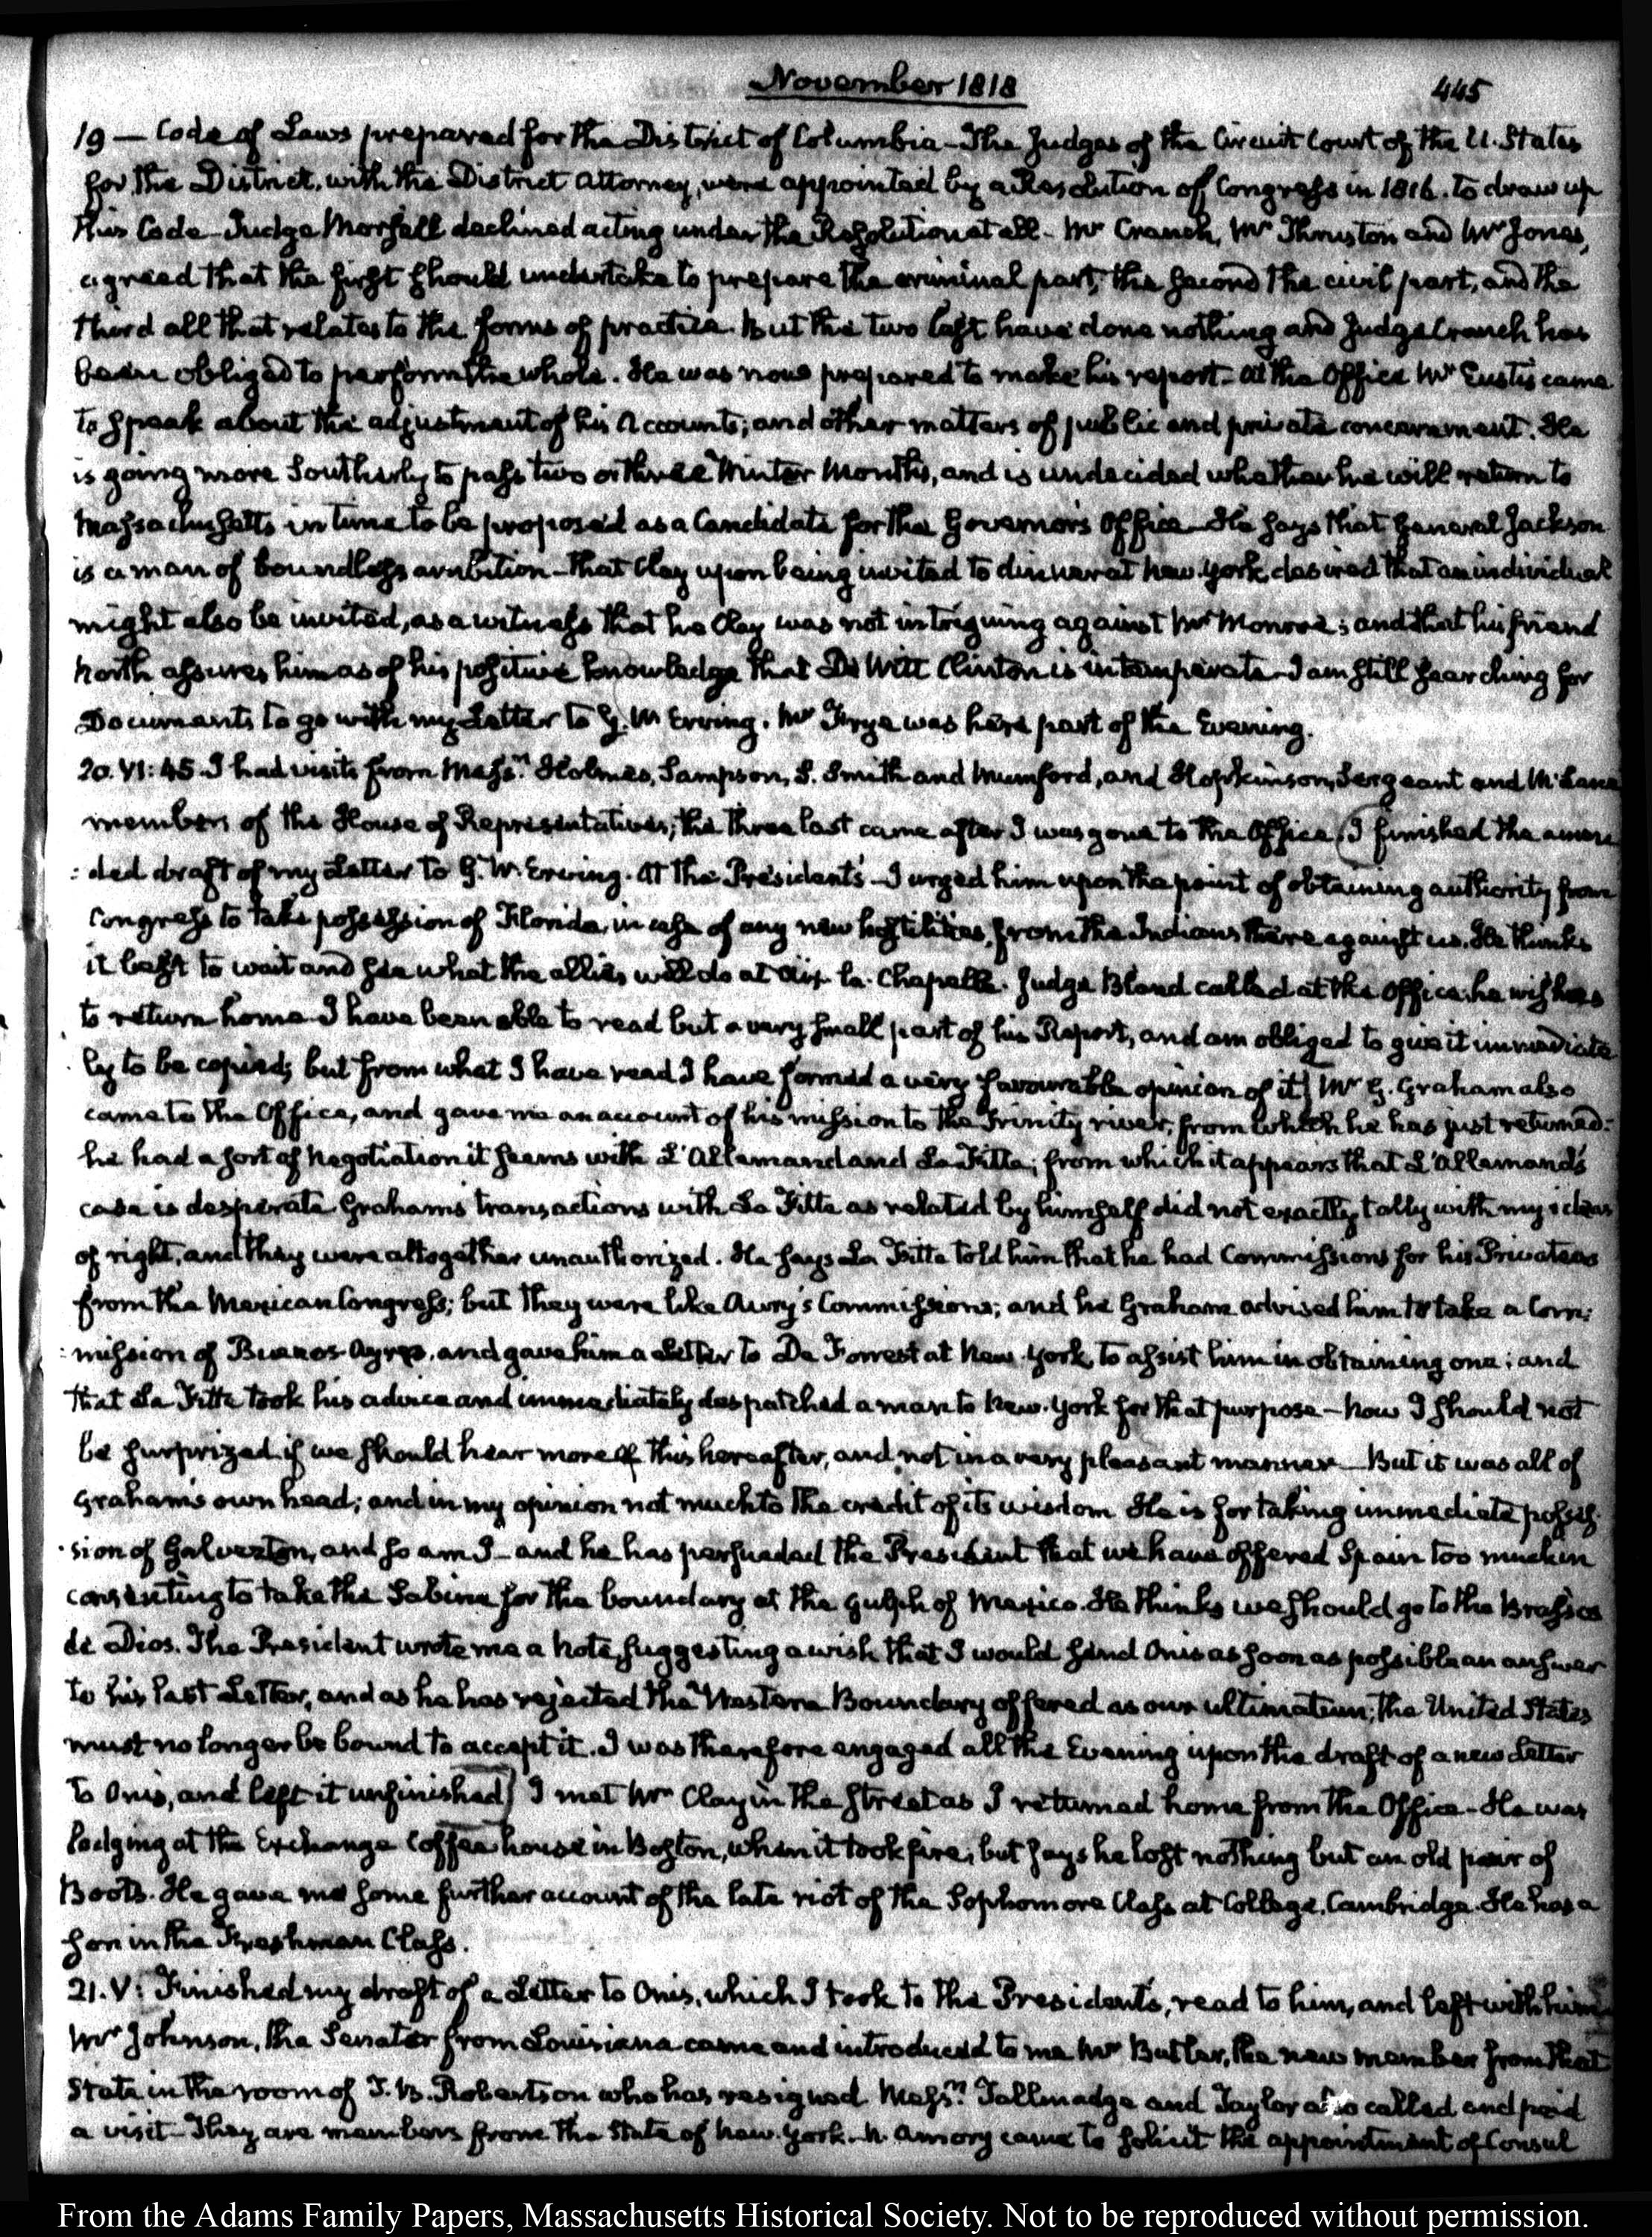 November 1818
445
19 — Code of Laws prepared for the District of Columbia – The Judges of the Circuit Court of the U. States
for the District, with the District Attorney, were appointed by a Resolution of Congress in 1816. to draw up
this Code – Judge Morsell declined acting under the Resolution at all – Mr Cranch, Mr Thruston and Mr Jones,
agreed that the first should undertake to prepare the criminal part, the second the civil part, and the
third all that relates to the forms of practice. But the two last have done nothing and Judge Cranch has
been obliged to perform the whole. He was now prepared to make his report – At the Office Mr Eustis came
to speak about the adjustment of his Accounts; and other matters of public and private concernment. He
is going more Southerly to pass two or three Winter Months, and is undecided whether he will return to
Massachusetts in time to be proposed as a Candidate for the Governor's Office – He says that General Jackson
is a man of boundless ambition – that Clay upon being invited to dinner at New-York, desired that an individual
might also be invited, as a witness that he Clay was not intriguing against Mr Monroe; and that his friend
North assures him as of his positive knowledge that De Witt Clinton is intemperate – I am still searching for
Documents to go with my Letter to G. W Erving. Mr Frye was here part of the Evening.
20. VI: 45. I had visits from Messrs Holmes, Sampson, S. Smith and Mumford, and Hopkinson, Sergeant and McLane
members of the House of Representatives; the three last came after I was gone to the Office. I finished the amen
:ded draft of my Letter to G. W. Erving. At the President's – I urged him upon the point of obtaining authority from
Congress to take possession of Florida, in case of any new hostilities, from the Indians there against us. He thinks
it best to wait and see what the allies will do at Aix-la-Chapelle. Judge Bland called at the Office; he wishes
to return home. I have been able to read but a very small part of his Report, and am obliged to give it immediate
ly to be copied; but from what I have read I have formed a very favourable opinion of it] Mr G. Graham also
came to the Office, and gave me an account of his mission to the Trinity river, from which he has just returned:
he had a sort of Negotiation it seems with L'Allemand and La Fitte; from which it appears that L'Allemand's
case is desperate. Graham's transactions with La Fitte as related by himself did not exactly tally with my ideas
of right, and they were altogether unauthorized. He says La Fitte told him that he had Commissions for his Privateers
from the Mexican Congress; but they were like Aury's Commissions; and he Graham advised him to take a Com:
:mission of Buenos-Ayres, and gave him a Letter to De Forrest at New-York, to assist him in obtaining one; and
that La Fitte took his advice and immediately despatched a man to New-York for that purpose – Now I should not
be surprized if we should hear more of this hereafter, and not in a very pleasant manner – But it was all of
Graham's own head; and in my opinion not much to the credit of its wisdom. He is for taking immediate posses
:sion of Galvezton, and so am I – and he has persuaded the President that we have offered Spain too much in
consenting to take the Sabine for the boundary at the Gulph of Mexico. He thinks we should go to the Brassos
de Dios. The President wrote me a Note, suggesting a wish that I would send Onis as soon as possible an answer
to his last Letter, and as he has rejected the Western Boundary offered as our ultimatum, the United States
must no longer be bound to accept it. I was therefore engaged all the Evening upon the draft of a new Letter
to Onis, and left it unfinished] I met Mr Clay in the street as I returned home from the Office – He was
lodging at the Exchange Coffee house in Boston, when it took fire; but says he lost nothing but an old pair of
Boots. He gave me some further account of the late riot of the Sophomore Class at College, Cambridge. He has a
son in the Freshman Class.
21. V: Finished my draft of a Letter to Onis, which I took to the President's, read to him, and left with him.
Mr Johnson, the Senator from Louisiana came and introduced to me Mr Butler, the new member from that
State in the room of T. B. Robertson who has resigned. Messrs Tallmadge and Taylor also called and paid
a visit – They are members from the State of New-York. N. Amory came to solicit the appointment of Consul
From the Adams Family Papers, Massachusetts Historical Society. Not to be reproduced without permission.